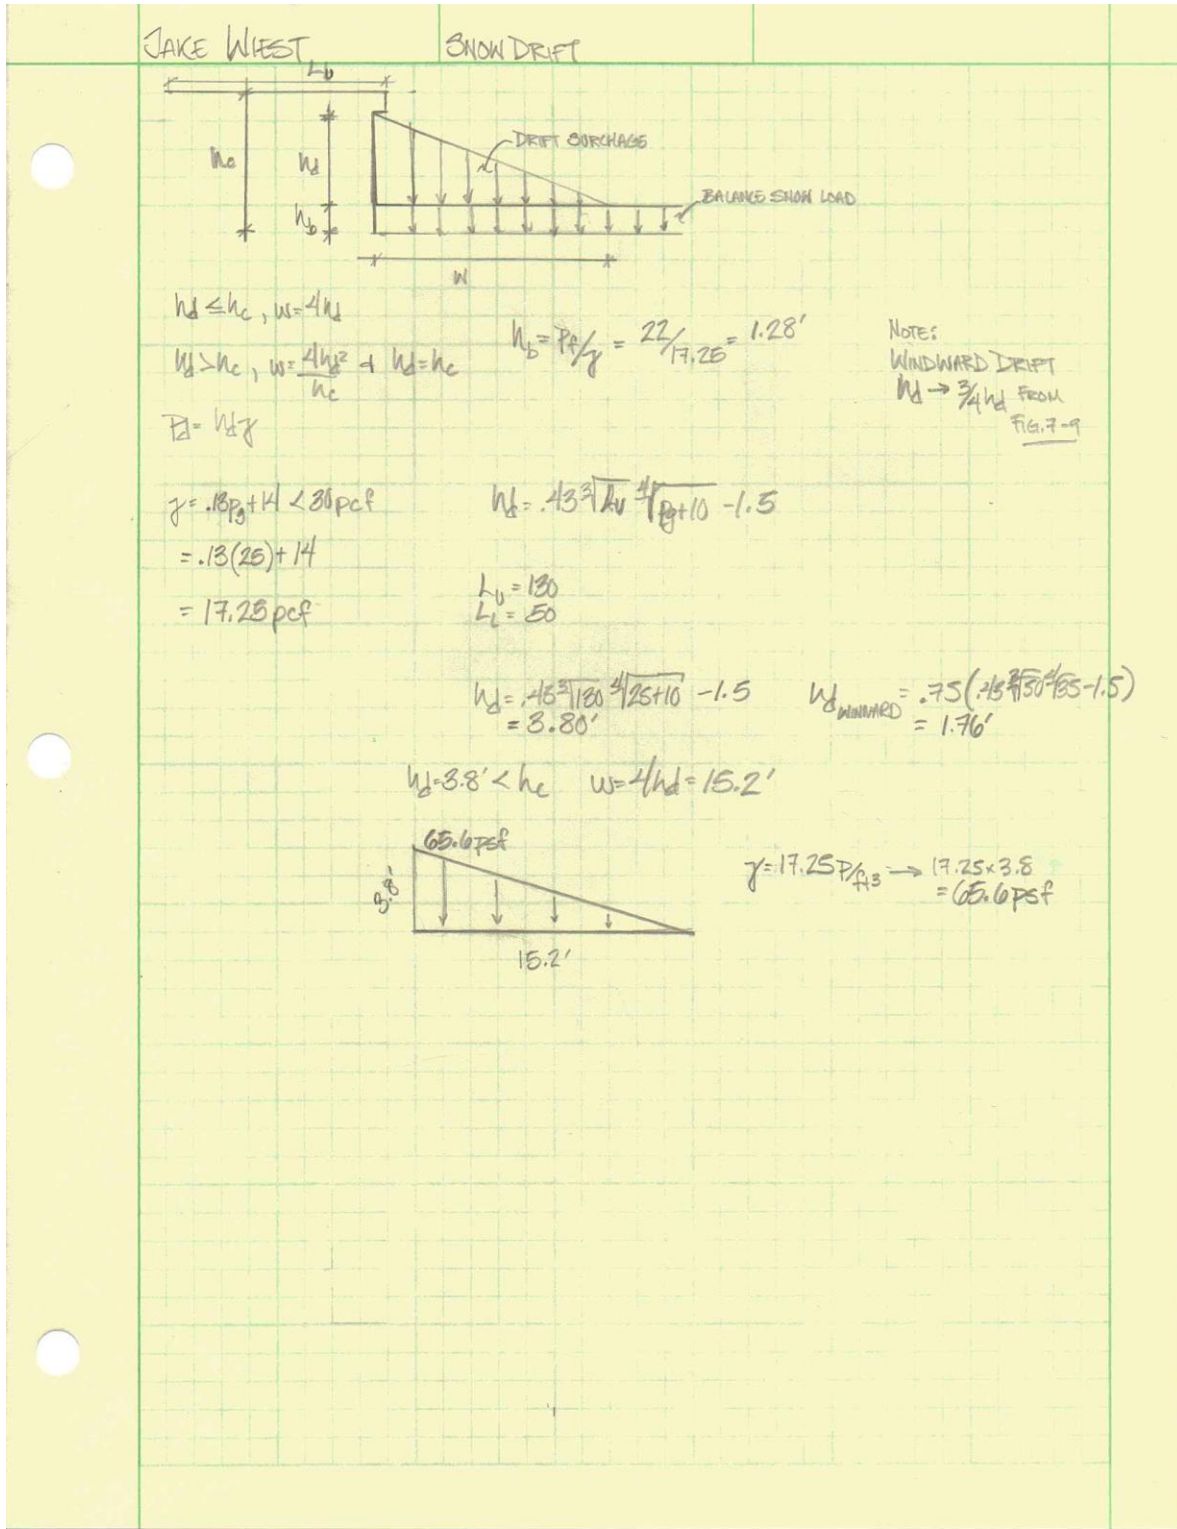 JAKE WIEST
SNOW DRIFT
Lu
hc
hd
hb
DRIFT SURCHAGE
BALANCE SNOW LOAD
w
hd ≤ hc, w=4hd
hd > hc, w= 4hd²/hc & hd=hc
Pd= hdγ
hb = Pf/γ = 22/17.25 = 1.28'
NOTE:
WINDWARD DRIFT
hd → 3/4 hd FROM
FIG. 7-9
γ = .13pg+14 < 30pcf
= .13(25)+14
= 17.25pcf
hd = .43 ∛Lu ∜pg+10 - 1.5
Lu = 130
LL = 50
hd = .43 ∛130 ∜25+10 - 1.5
= 3.80'
hd WINWARD = .75(.43 ∛50 ∜35 - 1.5)
= 1.76'
hd=3.8' < hc w=4hd=15.2'
65.6psf
3.8'
15.2'
γ=17.25 P/ft3 → 17.25×3.8
= 65.6psf